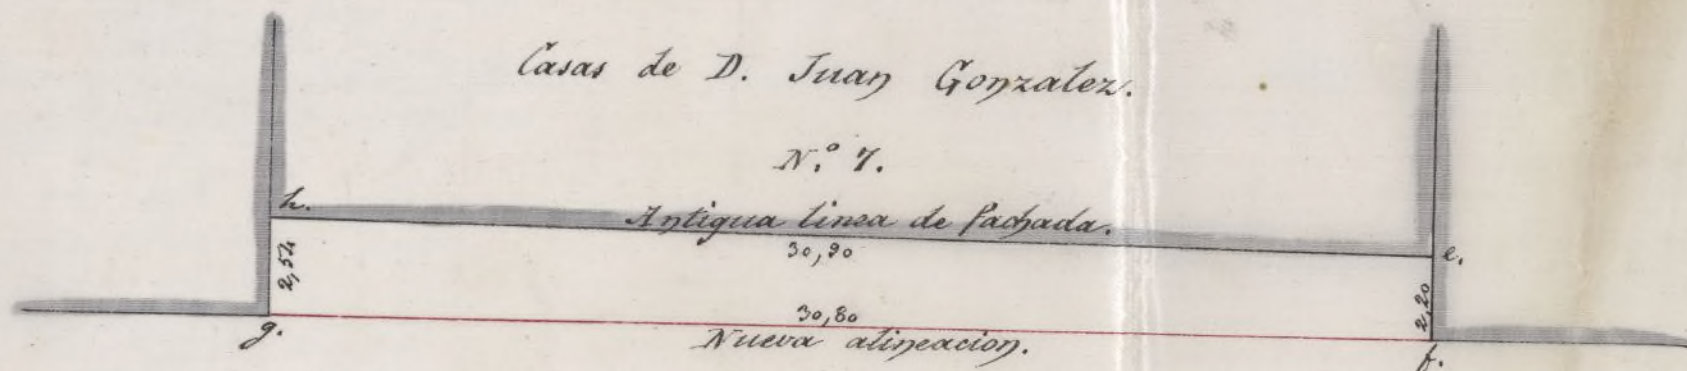 Casas de D. Juan Gonzalez.
N.º 7.
h.
Antigua linea de fachada.
30,90
e.
2,54
2,20
30,80
g.
Nueva alineacion.
f.